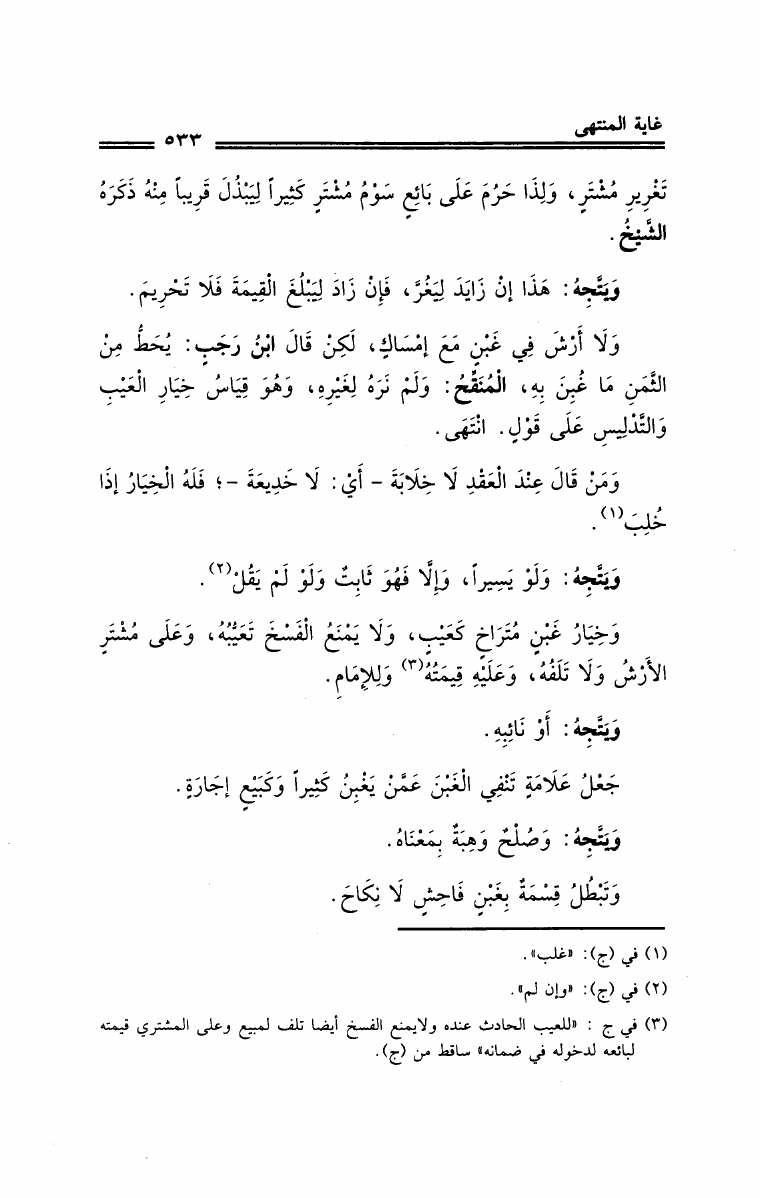 غاية المنتهى
٥٣٣
تَغْرِيرِ مُشْتَرٍ، وَلِذَا حَرُمَ عَلَى بَائِعٍ سَوْمُ مُشْتَرٍ كَثِيراً لِيَبْذُلَ قَرِيباً مِنْهُ ذَكَرَهُ
الشَّيْخُ.
وَيَتَّجِهُ: هَذَا إنْ زَايَدَ لِيَغُرَّ، فَإِنْ زَادَ لِيَبْلُغَ الْقِيمَةَ فَلَا تَحْرِيمَ.
وَلَا أَرْشَ فِي غَبْنٍ مَعَ إمْسَاكٍ، لَكِنْ قَالَ ابْنُ رَجَبٍ: يُحَطُّ مِنْ
الثَّمَنِ مَا غُبِنَ بِهِ، الْمُنَقِّحُ: وَلَمْ نَرَهُ لِغَيْرِهِ، وَهُوَ قِيَاسُ خِيَارِ الْعَيْبِ
وَالتَّدْلِيسِ عَلَى قَوْلٍ. انْتَهَى.
وَمَنْ قَالَ عِنْدَ الْعَقْدِ لَا خِلَابَةَ - أَيْ: لَا خَدِيعَةَ -؛ فَلَهُ الْخِيَارُ إذَا
خُلِبَ(١).
وَيَتَّجِهُ: وَلَوْ يَسِيراً، وَإِلَّا فَهُوَ ثَابِتٌ وَلَوْ لَمْ يَقُلْ(٢).
وَخِيَارُ غَبْنٍ مُتَرَاخٍ كَعَيْبٍ، وَلَا يَمْنَعُ الْفَسْخَ تَعَيُّبُهُ، وَعَلَى مُشْتَرٍ
الأَرْشُ وَلَا تَلَفُهُ، وَعَلَيْهِ قِيمَتُهُ(٣) وَلِلإِمَامِ.
وَيَتَّجِهُ: أَوْ نَائِبِهِ.
جَعْلُ عَلَامَةٍ تَنْفِي الْغَبْنَ عَمَّنْ يَغْبِنُ كَثِيراً وَكَبَيْعٍ إجَارَةٍ.
وَيَتَّجِهُ: وَصُلْحٌ وَهِبَةٌ بِمَعْنَاهُ.
وَتَبْطُلُ قِسْمَةٌ بِغَبْنٍ فَاحِشٍ لَا نِكَاحَ.
(١) في (ج): «غلب».
(٢) في (ج): «وإن لم».
(٣) في ج : «للعيب الحادث عنده ولايمنع الفسخ أيضا تلف لمبيع وعلى المشتري قيمته
لبائعه لدخوله في ضمانه» ساقط من (ج).